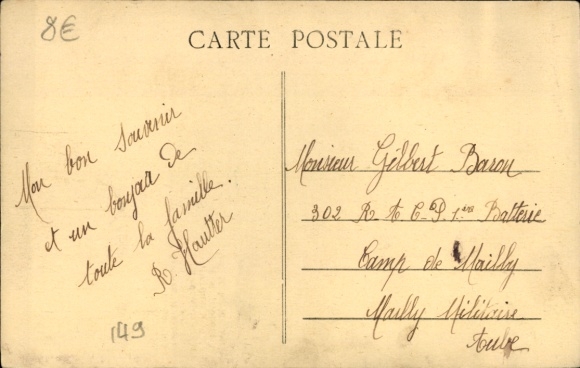 8€
CARTE POSTALE
Mon bon souvenir
et un bonjour de
toute la famille.
R. Hautier
149
Monsieur Gilbert Baron
302 R A C-P 1ère Batterie
Camp de Mailly
Mailly Militaire
Aube